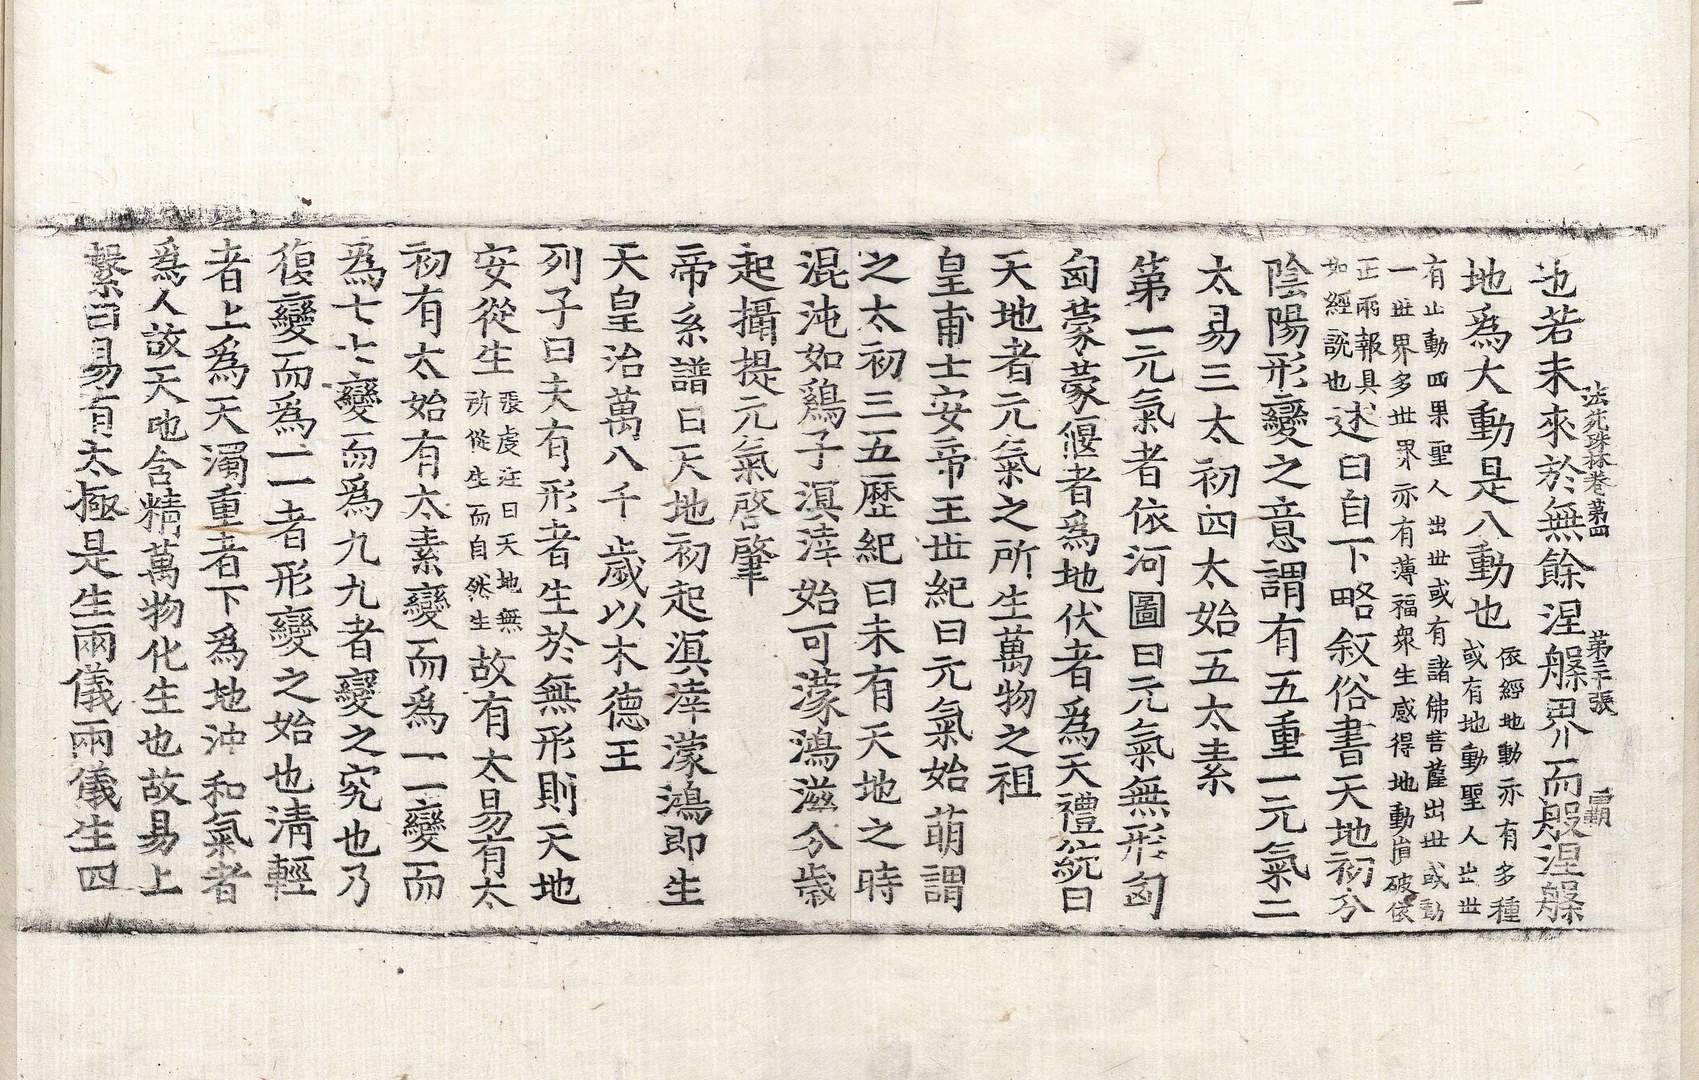 法苑珠林卷第四　第三張　霸
也若未來於無餘涅槃界而般涅槃
地爲大動是八動也依經地動亦有多種
或有地動聖人出世
有止動四果聖人出世或有諸佛菩薩出世或動
一世界多世界亦有薄福衆生感得地動崩破依
正兩報具
如經說也述曰自下略叙俗書天地初分
陰陽形變之意謂有五重一元氣二
太易三太初四太始五太素
第一元氣者依河圖曰元氣無形匈
匈蒙蒙偃者爲地伏者爲天禮統曰
天地者元氣之所生萬物之祖
皇甫士安帝王世紀曰元氣始萌謂
之太初三五歷紀曰未有天地之時
混沌如鷄子溟涬始可濛鴻滋分歲
起攝提元氣啓肇
帝系譜曰天地初起溟涬濛鴻即生
天皇治萬八千歲以木德王
列子曰夫有形者生於無形則天地
安從生張處注曰天地無
所從生而自然生故有太易有太
初有太始有太素變而爲一一變而
爲七七變而爲九九者變之究也乃
復變而爲一一者形變之始也清輕
者上爲天濁重者下爲地沖和氣者
爲人故天地含精萬物化生也故易上
繫曰易有太極是生兩儀兩儀生四